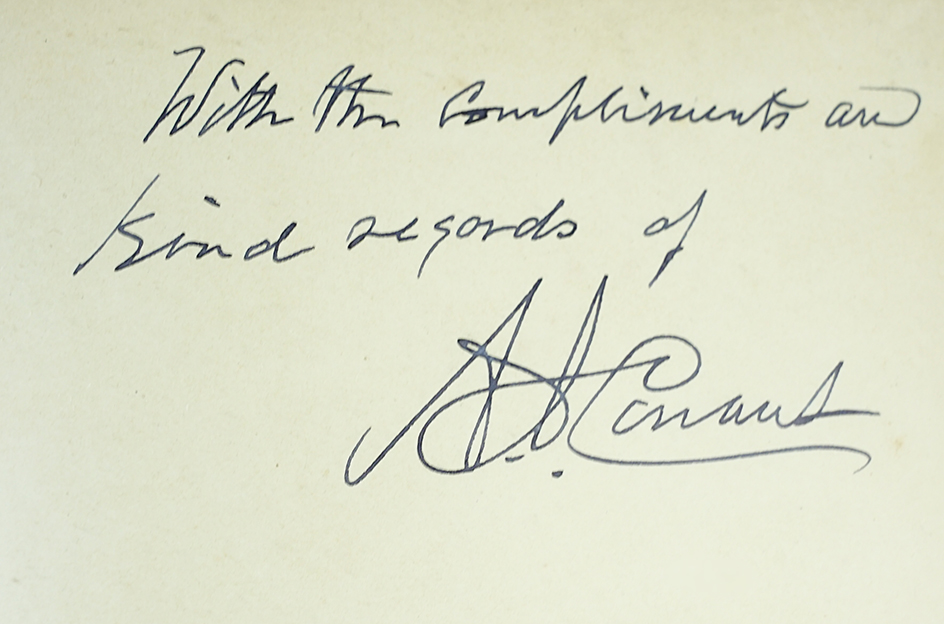 With the compliments and
kind regards of
A. S. Conant